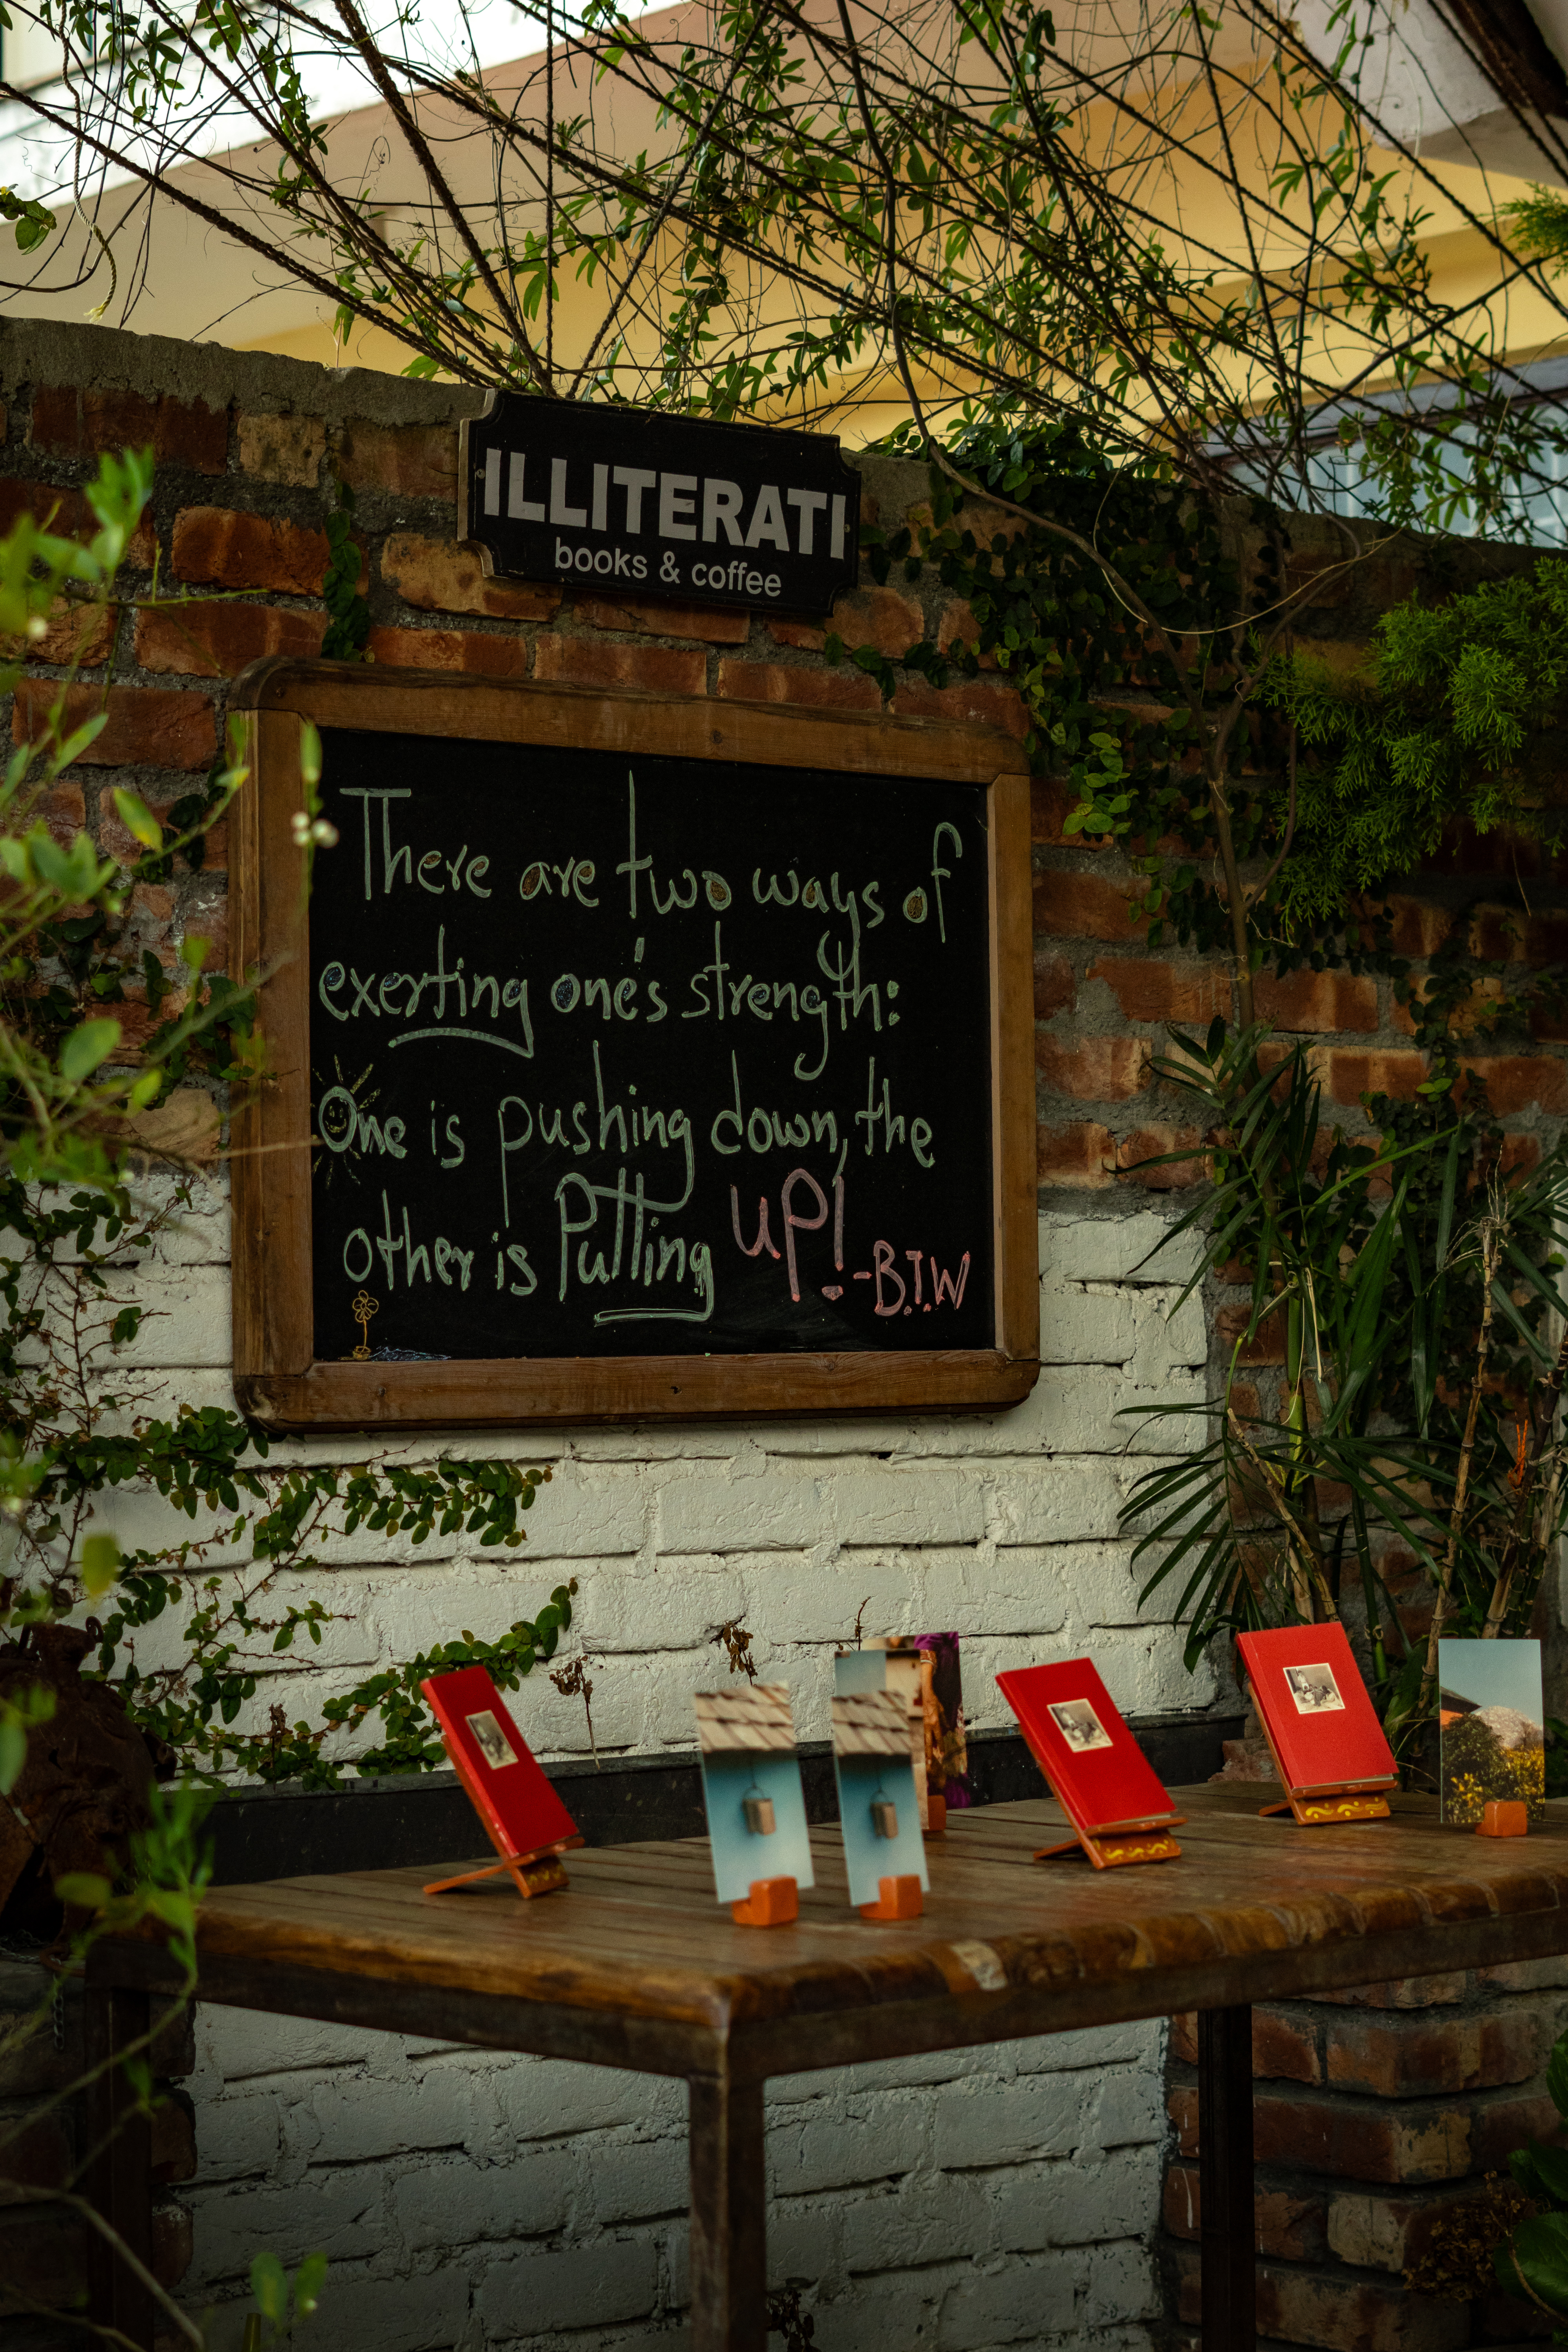 ILLITERATI
books & coffee
There are two ways of
exerting one's strength:
One is pushing down, the
other is Pulling UP! -B.T.W